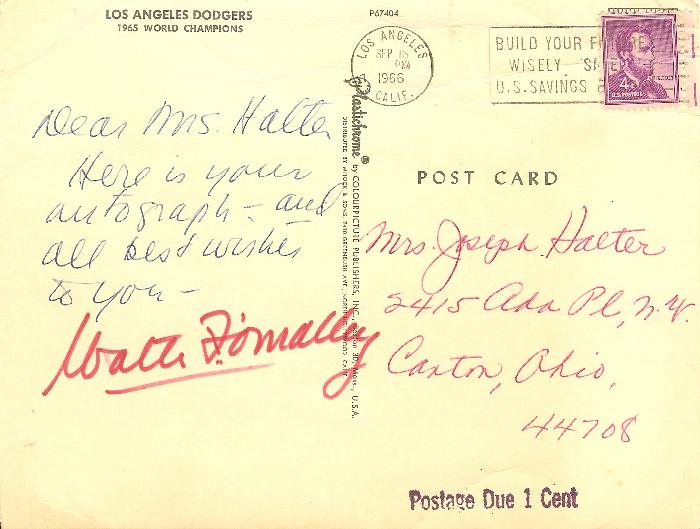 LOS ANGELES DODGERS
1965 WORLD CHAMPIONS
P67404
LOS ANGELES
SEP 15
PM
1966
CALIF.
BUILD YOUR
WISELY
U.S. SAVINGS
4¢
U.S. POSTAGE
Dear Mrs. Halter
Here is your
autograph - and
all best wishes
to you -
Walter F. O'Malley
Plastichrome® by COLOURPICTURE PUBLISHERS, INC., Boston 30, Mass., U.S.A.
DISTRIBUTED BY MITOCK & SONS,
POST CARD
Mrs. Joseph Halter
2415 Ada Pl, N.W.
Canton, Ohio,
44708
Postage Due 1 Cent